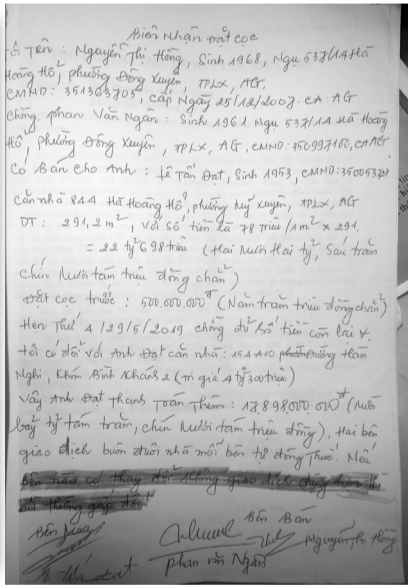 Biên Nhận Đặt Cọc
Tôi Tên : Nguyễn Thị Hồng, Sinh 1968, Ngụ 537/14 Hà
Hoàng Hổ, phường Đông Xuyên, TPLX, AG.
CMND: 351363705, cấp Ngày 25/12/2007. CA: AG
Chồng. phan Văn Ngàn : Sinh 1961 Ngụ 537/14 Hà Hoàng
Hổ, phường Đông Xuyên, TPLX, AG, CMND: 350997160, CA AG
Có Bán cho Anh : Lê Tấn Đạt, Sinh 1953, CMND:
căn nhà 844 Hà Hoàng Hổ, phường Mỹ Xuyên, TPLX, AG
DT : 291,2m², Với Số tiền là 78 Triệu/1m² x 291.
= 22 tỷ 698 triệu (Hai Mươi Hai tỷ, Sáu trăm
chín Mươi tám triệu đồng chẵn)
Đặt cọc trước : 500.000.000đ (Năm trăm triệu đồng chẵn)
Hẹn Thứ 4/29/5/2019 chồng đủ số tiền còn lại
tôi có đổi Với Anh Đạt căn nhà : 154A10 Đường Hàm
Nghi, Khóm Bình Khánh 2 (trị giá 4 tỷ 300 triệu)
Vậy Anh Đạt Thanh Toán Thêm : 17,898000 000đ (Mười
bảy tỷ tám trăm, chín Mươi tám triệu đồng), Hai bên
giao dịch buôn đuôi nhà mỗi bên tự đóng Thuế. Nếu
Bên nào có thay đổi không giao dịch
Bồi thường gấp đôi
Bên Mua Bên Bán
phan văn Ngàn Nguyễn Thị Hồng